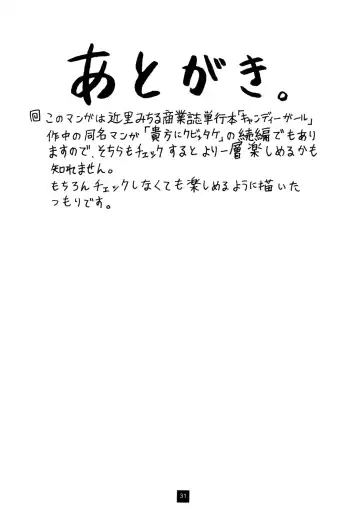 あとがき。
回このマンガは近里みちる商業誌単行本「キャンディーガール」
作中の同名マンガ「貴方にクビッタケ」の続編でもあり
ますので、そちらもチェックするとより一層楽しめるかも
知れません。
もちろんチェックしなくても楽しめるように描いた
つもりです。
31